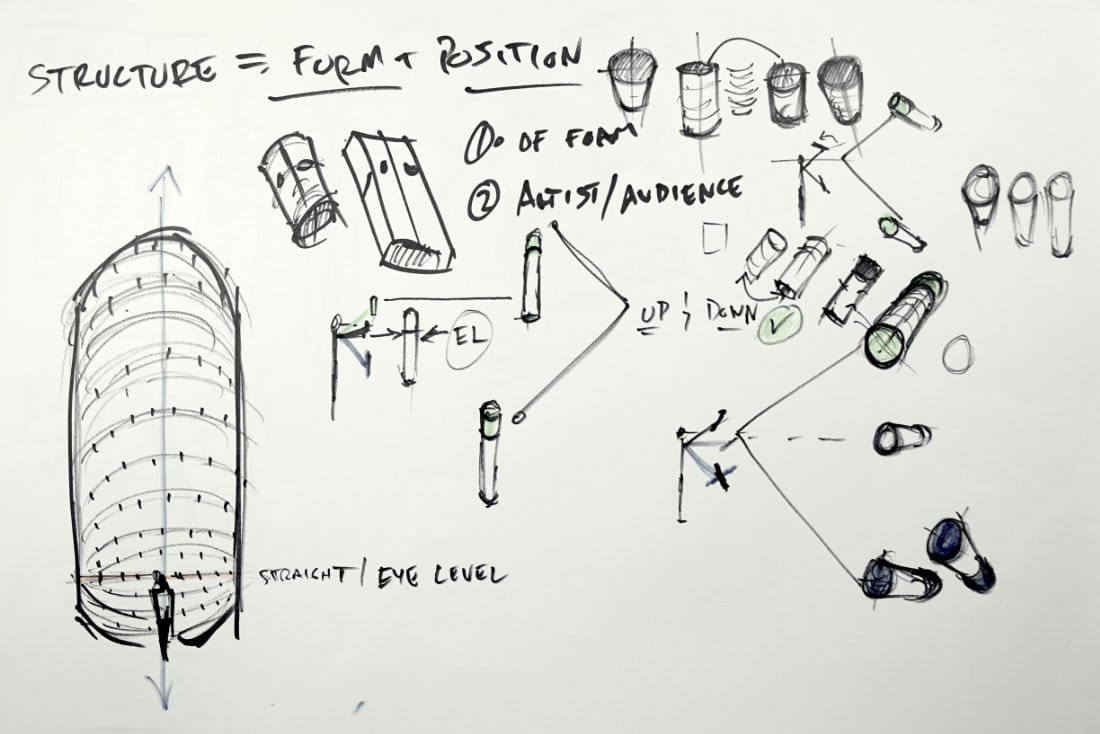 STRUCTURE = FORM + POSITION
① OF FORM
② ARTIST/AUDIENCE
UP & DOWN
EL
STRAIGHT / EYE LEVEL